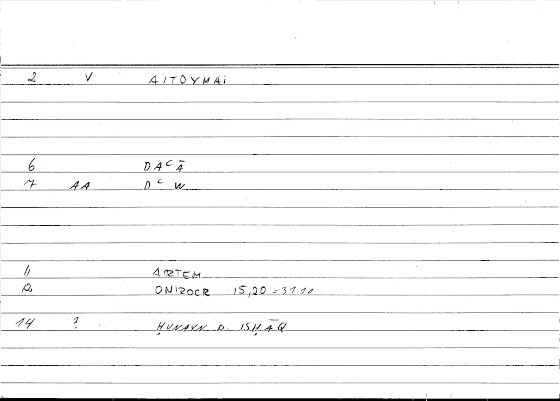 2 V AITOYMAI
6 DAᶜĀ
7 AA Dᶜ W
11 ARTEM
12 ONIROCR 15,20 = 31.10
14 ? ḤUNAYN B. ISḤĀQ